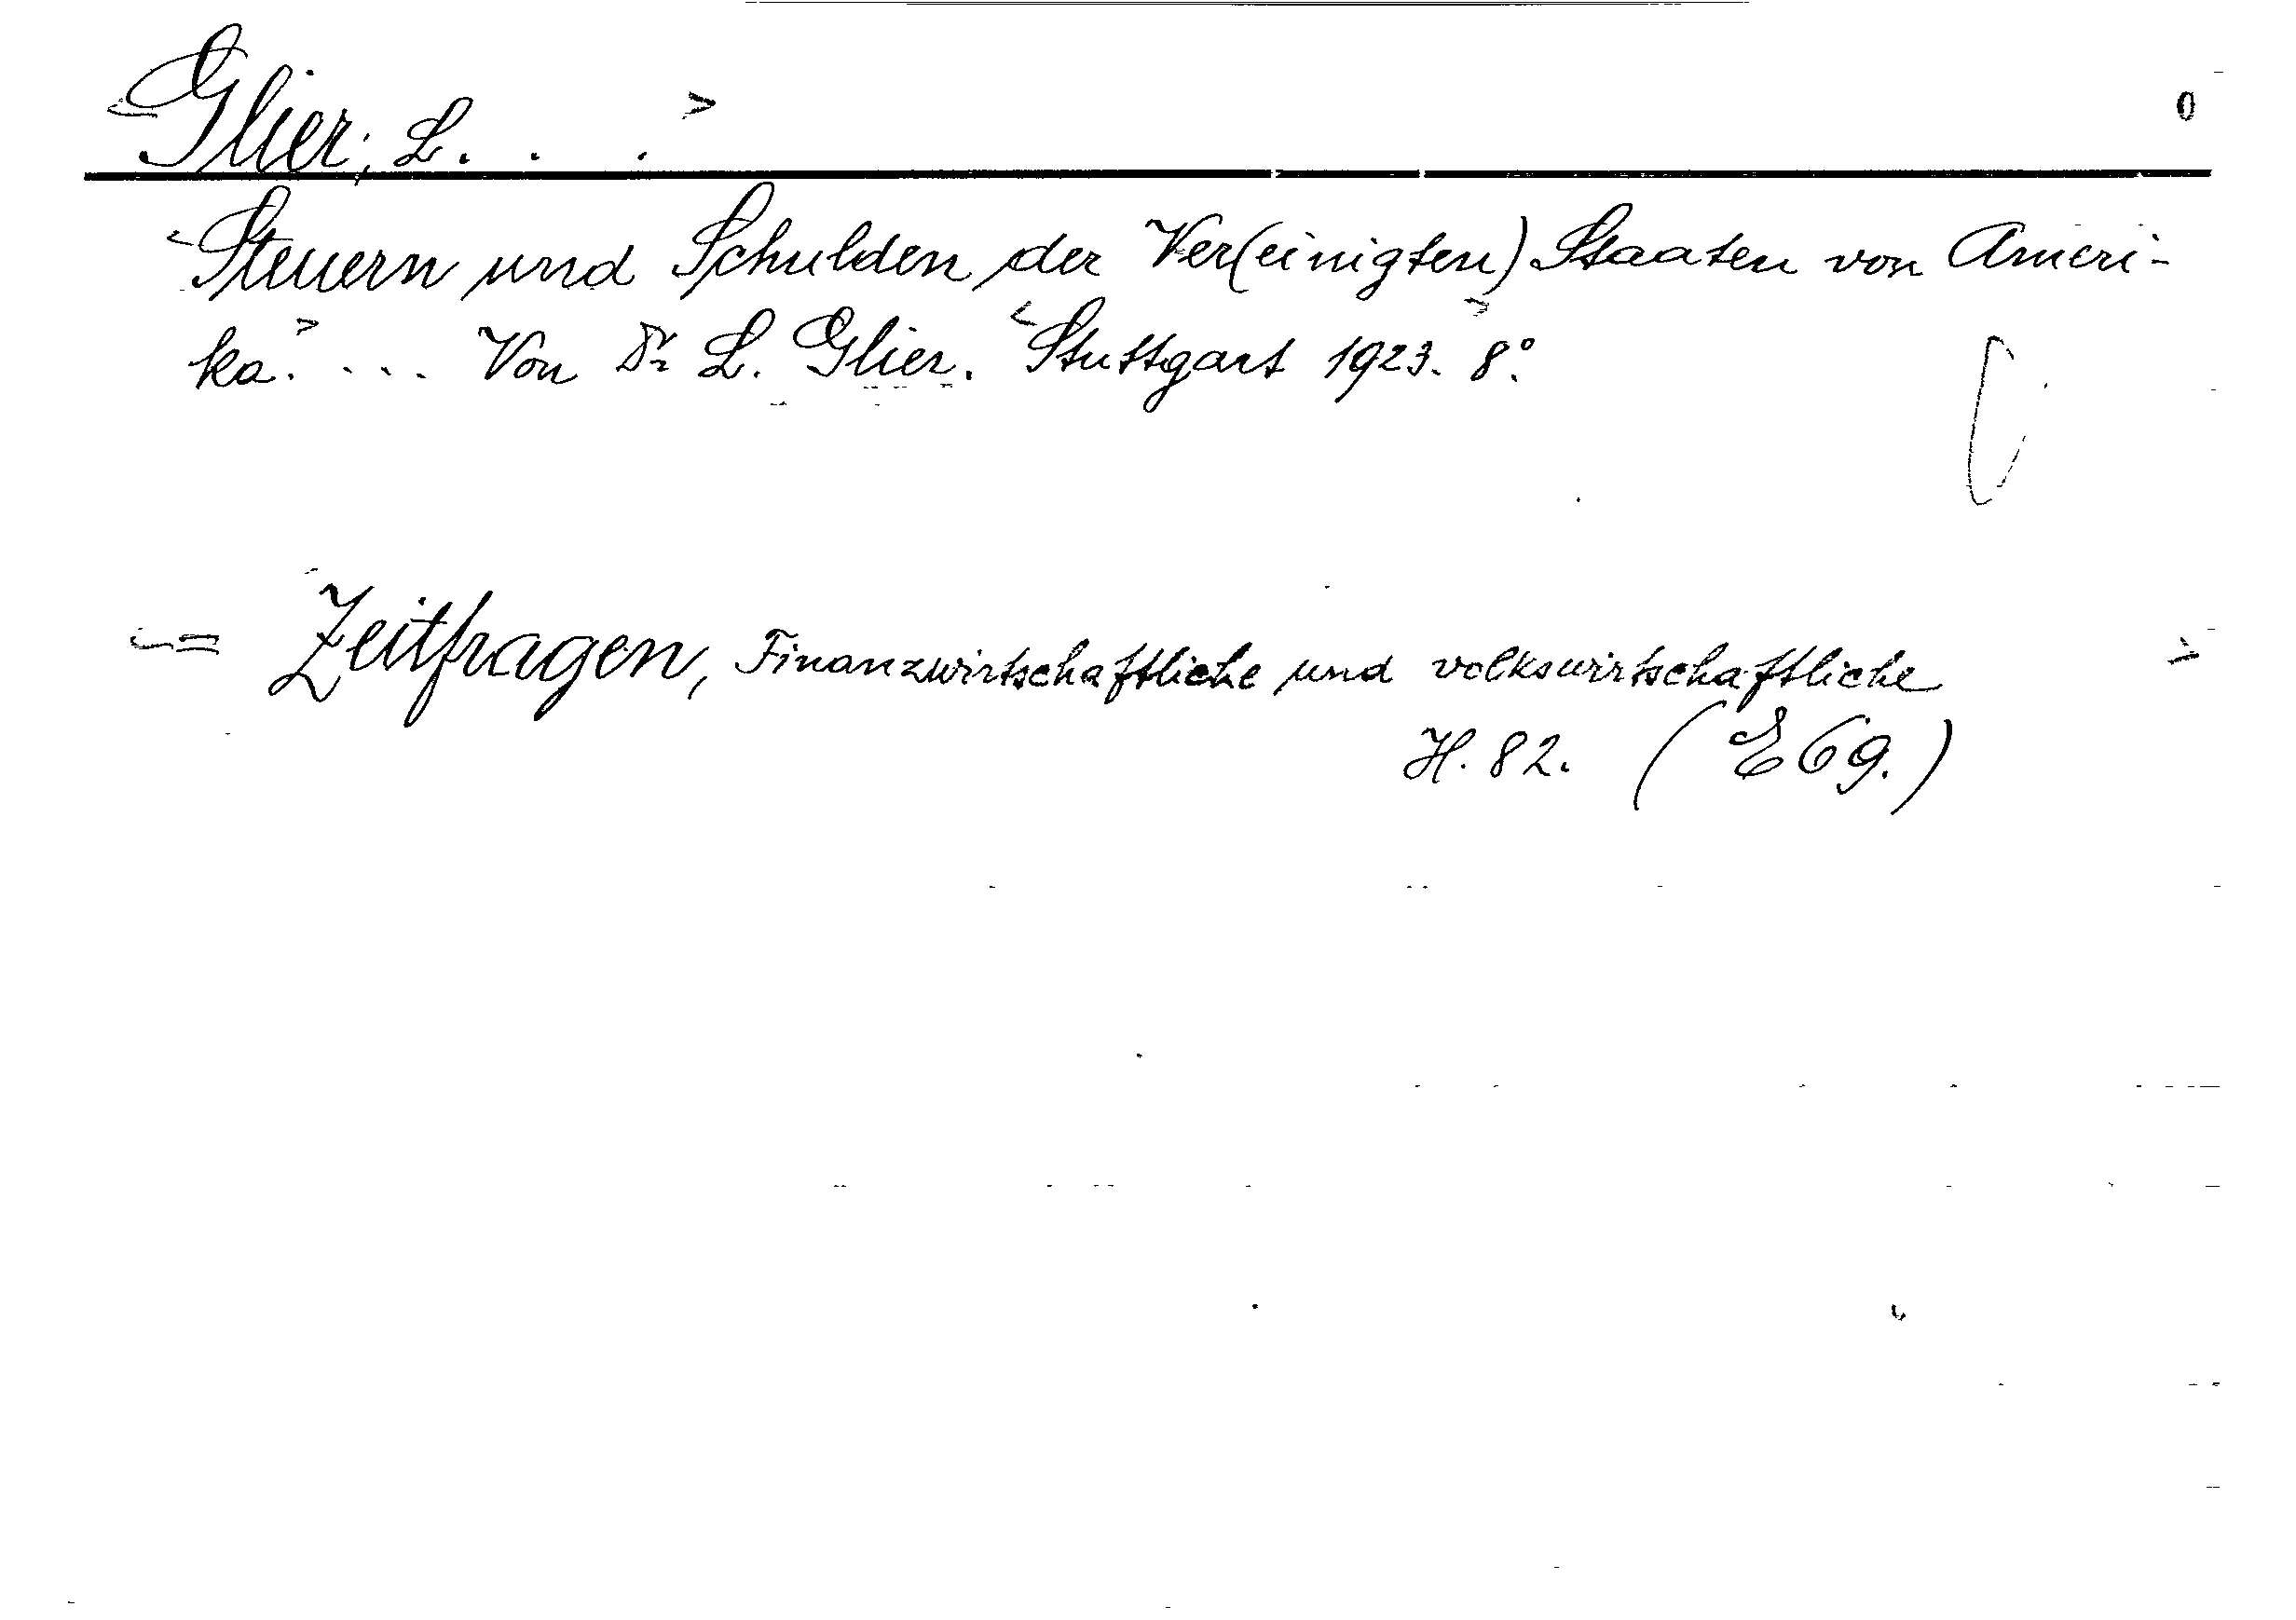 <Glier, L. . . > 0
<Steuern und Schulden der Ver(einigten) Staaten von Ameri-
ka.> ... Von Dr L. Glier. <Stuttgart 1923.> 8°.
= Zeitfragen, Finanzwirtschaftliche und volkswirtschaftliche >
H. 82. (E 69.)